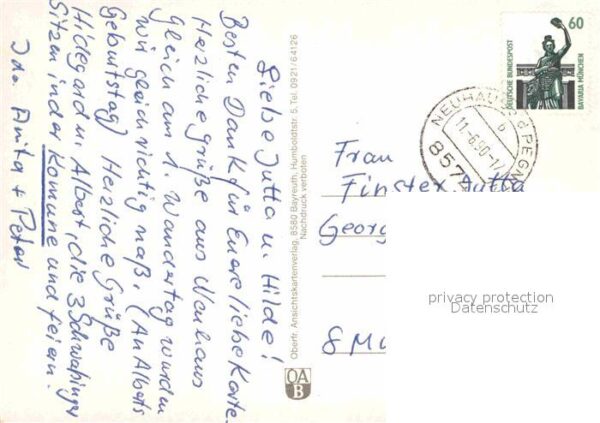 Liebe Jutta u. Hilde!
Besten Dank für Eure liebe Karte.
Herzliche Grüße aus Neuhaus
Gleich am 1. Wandertag wurden
wir gleich richtig naß. (An Alberts
Geburtstag) Herzliche Grüße
Hildegard u. Albert, die 3 Schwabinger
Sitzen in der Kommune und feiern.
Ida Anita + Peter
Oberfr. Ansichtskartenverlag, 8580 Bayreuth, Humboldtstr. 5, Tel. 0921/64126
Nachdruck verboten
OA
B
60
DEUTSCHE BUNDESPOST
BAVARIA MÜNCHEN
NEUHAUS a d PEGN
b
11.-6.90-1
857
Frau
Finster Jutta
Georg
8 Mü
privacy protection
Datenschutz